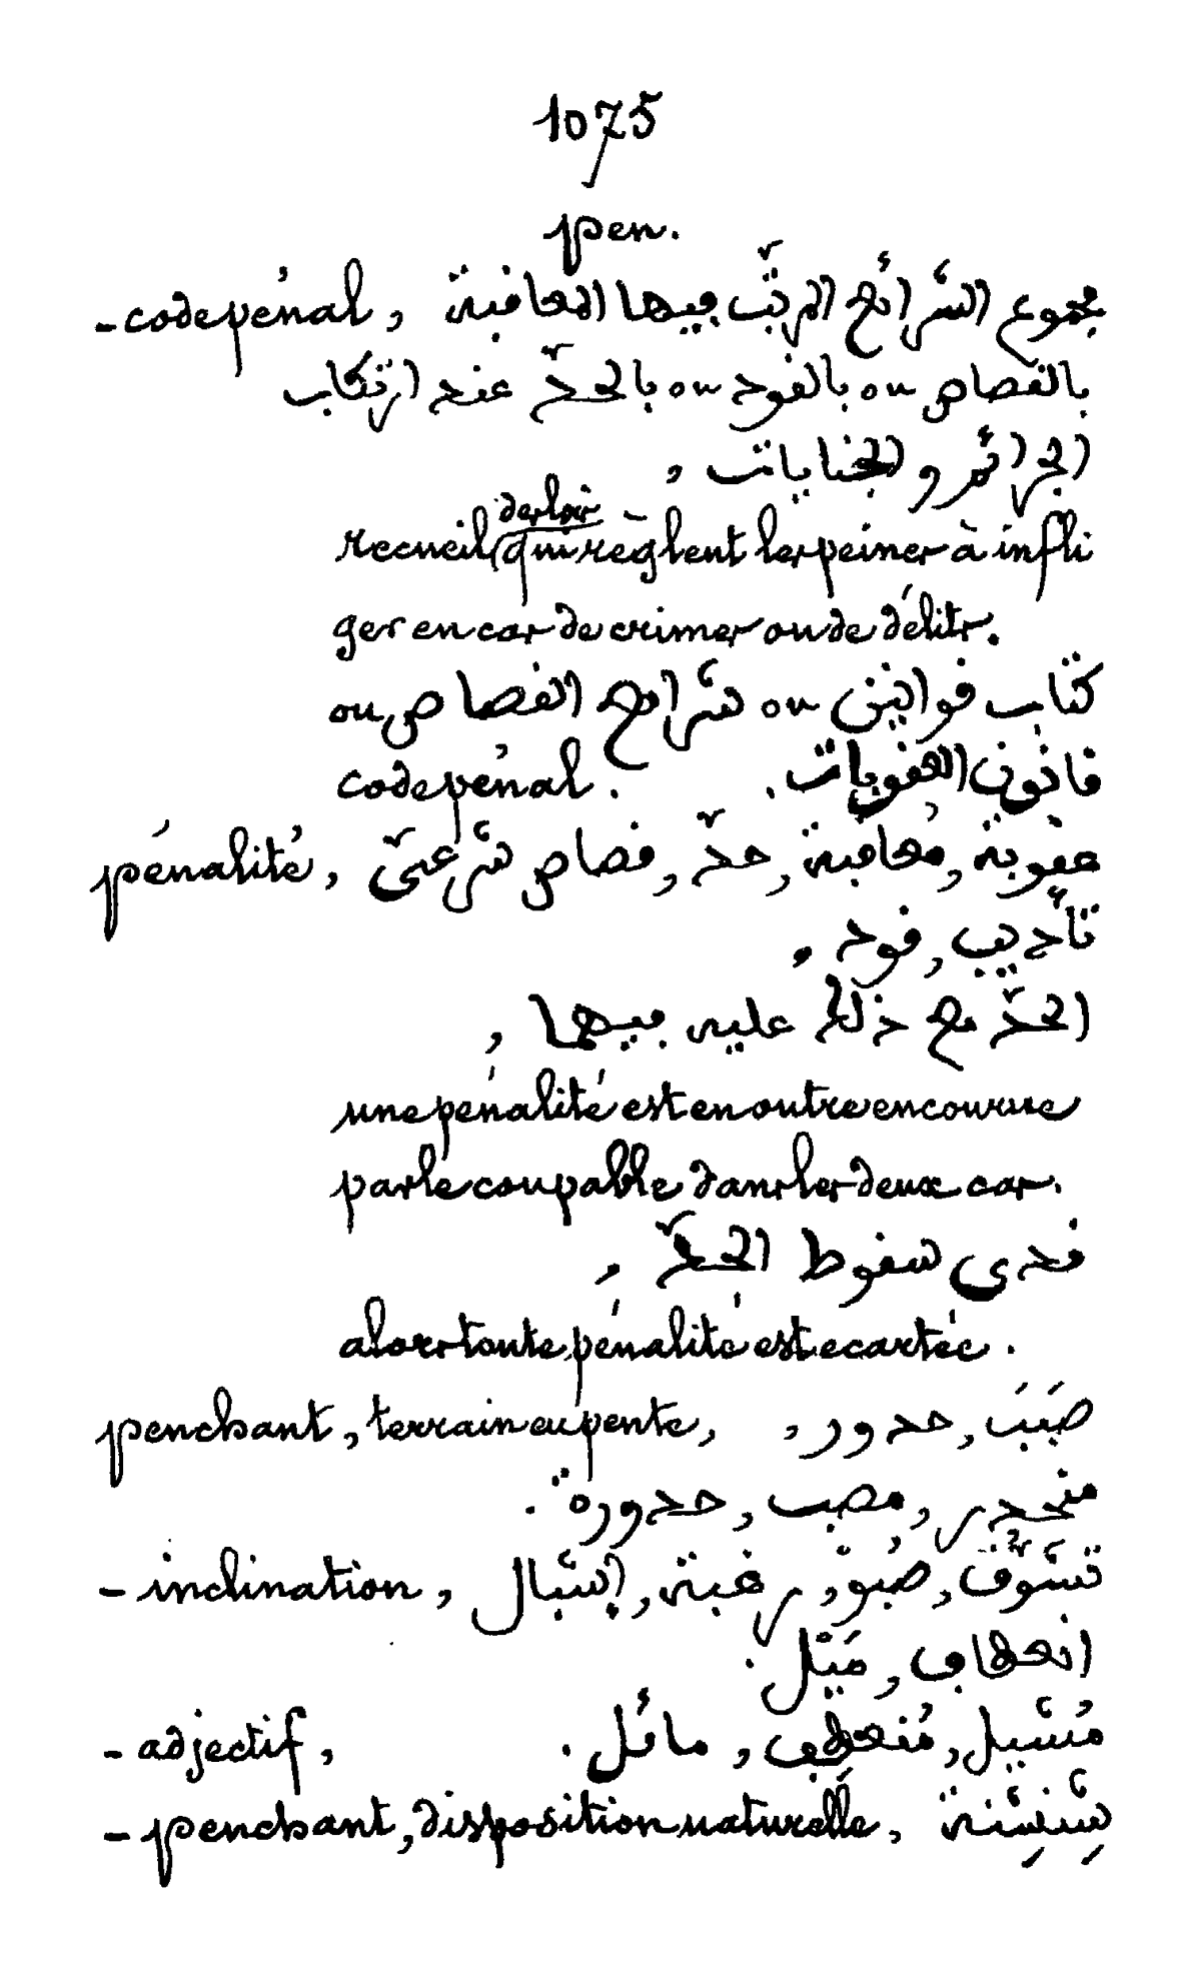 1075
pen.
- code pénal, مجموع الشرائع المرتّب فيها المعاقبة
بالقصاص ou بالقود ou بالحدّ عند ارتكاب
الجرائم والجنايات,
recueil des lois qui règlent les peines à infli
ger en cas de crimes ou de délits.
كتاب قوانين ou شرائع القصاص ou
قانون العقوبات. code pénal.
pénalité, عقوبة, مُعاقبة, حدّ, قصاص شرعىّ
تأديب, قود,
الحدّ مع ذلك عليه فيهما,
une pénalité est en outre encourue
par le coupable dans les deux cas.
فدى سقوط الحدّ,
alors toute pénalité est écartée.
penchant, terrain en pente, صَبَب, حدور,
منحدر, مصب, حدورة.
- inclination, تشوُّف, صُبوّ, رغبة, إشبال,
انعطاف, مَيْل.
- adjectif, مُشبيل, مُنعطِف, مائل.
- penchant, disposition naturelle, شِنشِنة